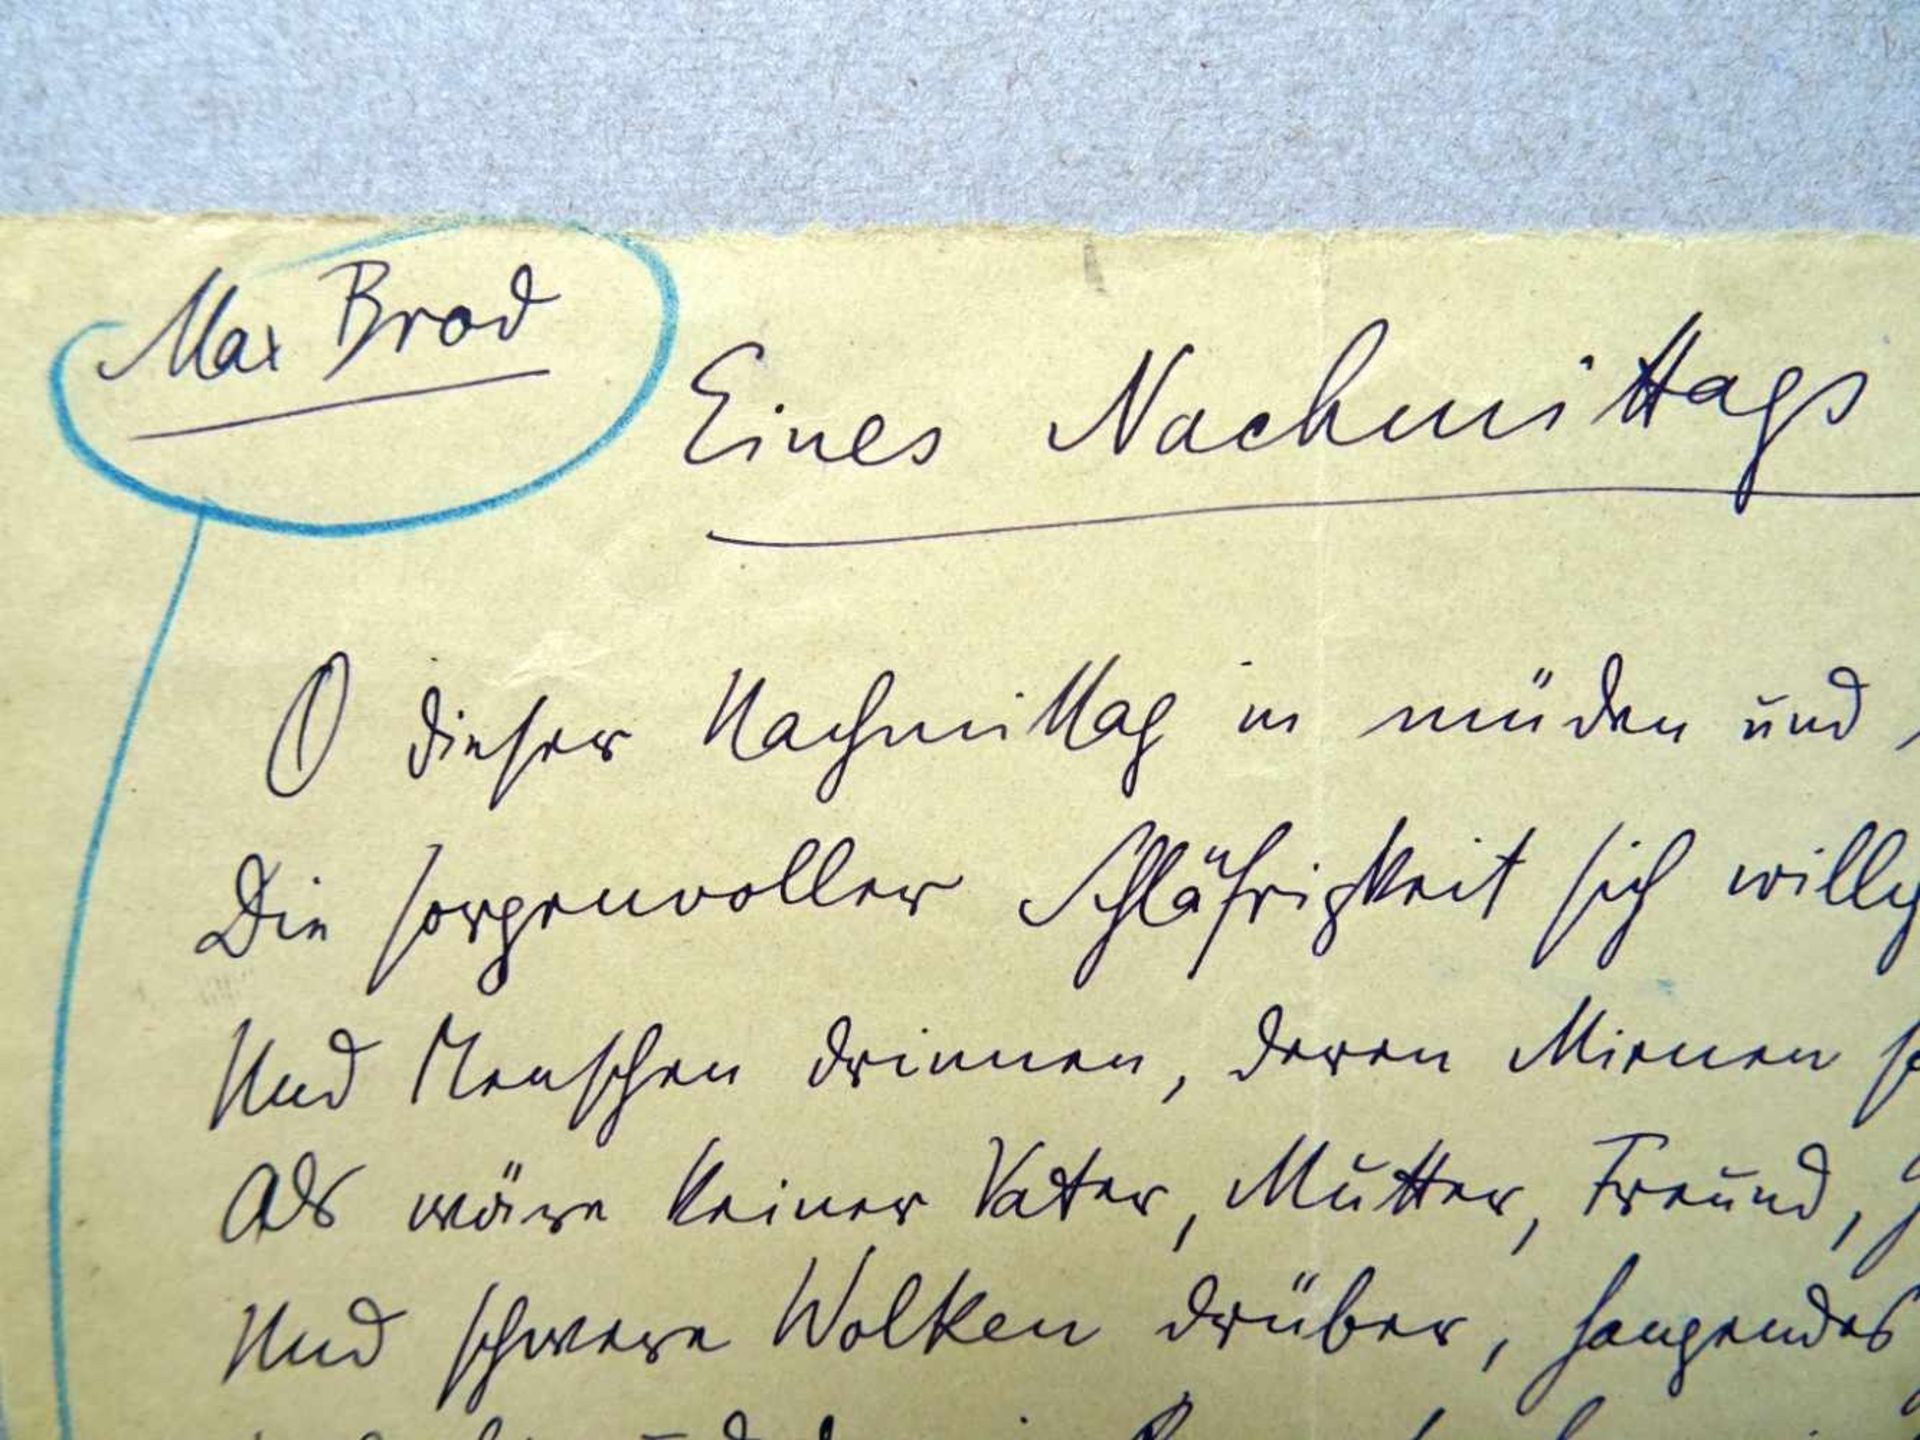 Max Brod
Eines Nachmittags
O dieser Nachmittag in müden und
Die sorgenvoller Schläfrigkeit sich
Und Menschen drinnen, deren Mienen
Als wäre keiner Vater, Mutter, Freund,
Und schwere Wolken drüber, hangendes